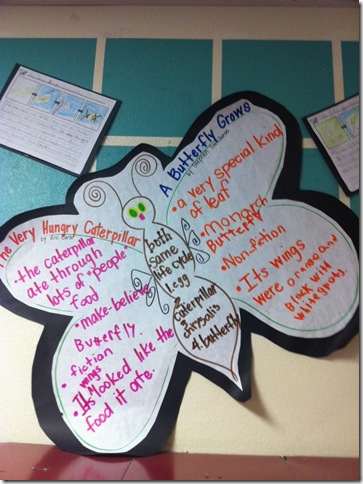 The Very Hungry Caterpillar
by Eric Carle
• the caterpillar
ate through
lots of "people
food
• make-believe
Butterfly.
• fiction
• Its wings looked like the
food it ate.
both
same
life cycle
1 egg
2 caterpillar
3 chrysalis
4 butterfly
A Butterfly Grows
by Stephen
• a very special kind
of leaf
• monarch
Butterfly
• Nonfiction
• Its wings
were orange and
Black wild
white spots.